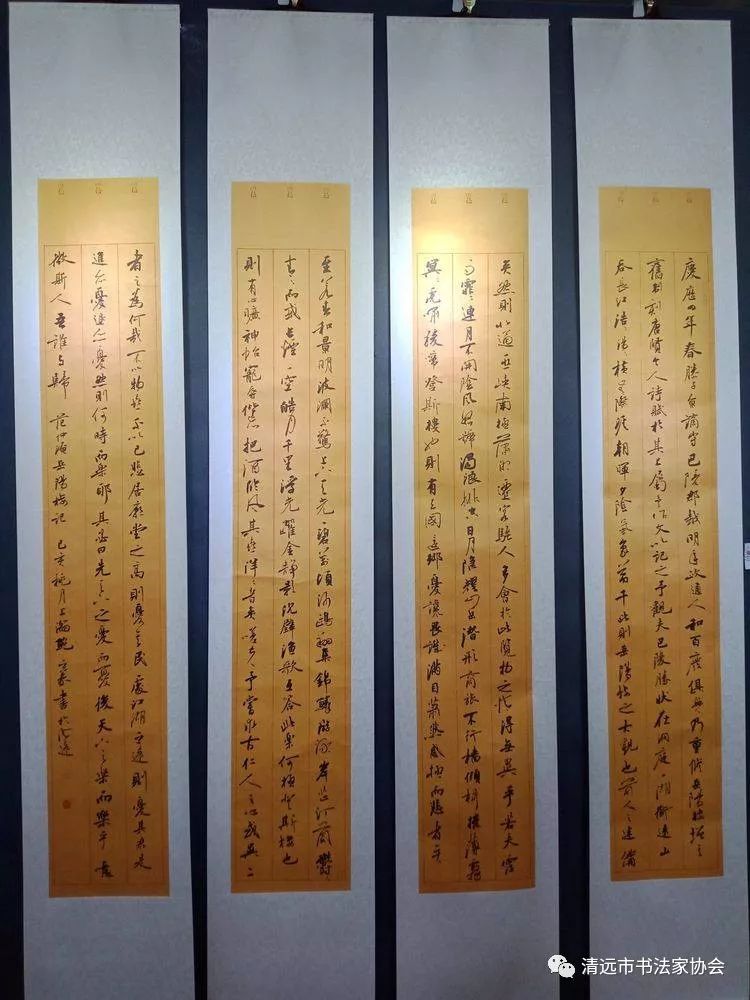 慶歷四年春滕子京謫守巴陵郡越明年政通人和百廢俱興乃重修岳陽樓增其
舊制刻唐賢今人詩賦於其上屬予作文以記之予觀夫巴陵勝狀在洞庭一湖銜遠山
吞長江浩浩湯湯橫無際涯朝暉夕陰氣象萬千此則岳陽樓之大觀也前人之述備
矣然則北通巫峽南極瀟湘遷客騷人多會於此覽物之情得無異乎若夫霪
雨霏霏連月不開陰風怒號濁浪排空日月隱耀山岳潛形商旅不行檣傾楫摧薄暮
冥冥虎嘯猿啼登斯樓也則有去國懷鄉憂讒畏譏滿目蕭然感極而悲者矣
至若春和景明波瀾不驚上下天光一碧萬頃沙鷗翔集錦鱗游泳岸芷汀蘭鬱鬱
青青而或長煙一空皓月千里浮光躍金靜影沉璧漁歌互答此樂何極登斯樓也
則有心曠神怡寵辱偕忘把酒臨風其喜洋洋者矣嗟夫予嘗求古仁人之心或異二
者之為何哉不以物喜不以己悲居廟堂之高則憂其民處江湖之遠則憂其君是
進亦憂退亦憂然則何時而樂耶其必曰先天下之憂而憂後天下之樂而樂乎噫
微斯人吾誰與歸 范仲淹岳陽樓記 己亥桃月上瀚 書於清遠
清远市书法家协会